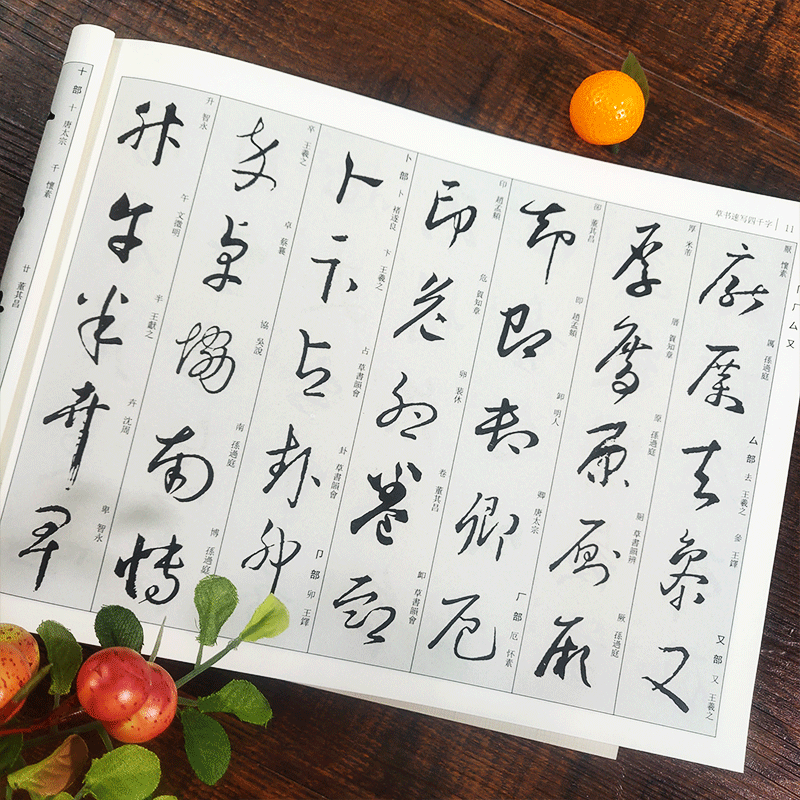 草书速写四千字 11
丨 厂 厶 又
十部 十 唐太宗
千 懷素
廿 董其昌
升 智永
升
午 文徵明
午
半 王獻之
半
卉 沈周
卉
卑 智永
卑
卒 王羲之
卒
卓 蔡襄
卓
協 吳說
協
南 孫過庭
南
博 孫過庭
博
卜部 卜 褚遂良
卜
卞 王羲之
卞
占 草書韻會
占
卦 草書韻會
卦
卩部 卯 王鐸
卯
印 趙孟頫
印
危 賀知章
危
卵 裴休
卵
卷 董其昌
卷
卸 草書韻會
董其昌
即 趙孟頫
即
卸 明人
卸
卿 唐太宗
卿
厂部 厄 怀素
厄
厚 米芾
厚
賀知章
原 孫過庭
原
草書韻辨
厥 孫過庭
厥
厭 懷素
厭
厲 孫過庭
厲
厶部 去 王羲之
去
參 王鐸
參
又部 又 王羲之
又